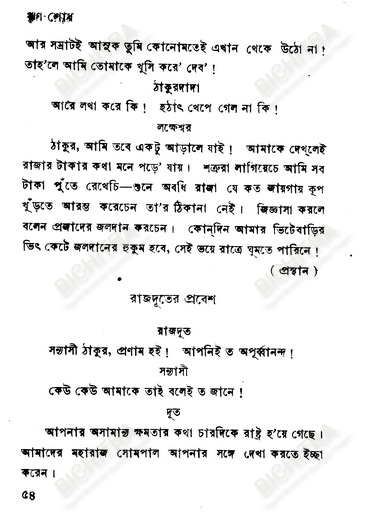 ঋণ-শোধ
আর সম্রাটই আসুক তুমি কোনোমতেই এখান থেকে উঠো না !
তাহ'লে আমি তোমাকে খুসি করে' দেব' !
ঠাকুরদাদা
আরে লখা করে কি ! হঠাৎ খেপে গেল না কি !
লক্ষেশ্বর
ঠাকুর, আমি তবে একটু আড়ালে যাই ! আমাকে দেখ্‌লেই
রাজার টাকার কথা মনে পড়ে' যায় । শত্রুরা লাগিয়েচে আমি সব
টাকা পুঁতে রেখেচি—শুনে অবধি রাজা যে কত জায়গায় কূপ
খুঁড়তে আরম্ভ করেচেন তা'র ঠিকানা নেই । জিজ্ঞাসা করলে
বলেন প্রজাদের জলদান করচেন । কোন্‌দিন আমার ভিটেবাড়ির
ভিৎ কেটে জলদানের হুকুম হবে, সেই ভয়ে রাত্রে ঘুমতে পারিনে !
( প্রস্থান )
রাজদূতের প্রবেশ
রাজদূত
সন্ন্যাসী ঠাকুর, প্রণাম হই ! আপনিই ত অপূর্ব্বানন্দ !
সন্ন্যাসী
কেউ কেউ আমাকে তাই বলেই ত জানে !
দূত
আপনার অসামান্য ক্ষমতার কথা চারদিকে রাষ্ট্র হ'য়ে গেছে ।
আমাদের মহারাজ সোমপাল আপনার সঙ্গে দেখা করতে ইচ্ছা
করেন ।
৫৪
BICHITRA